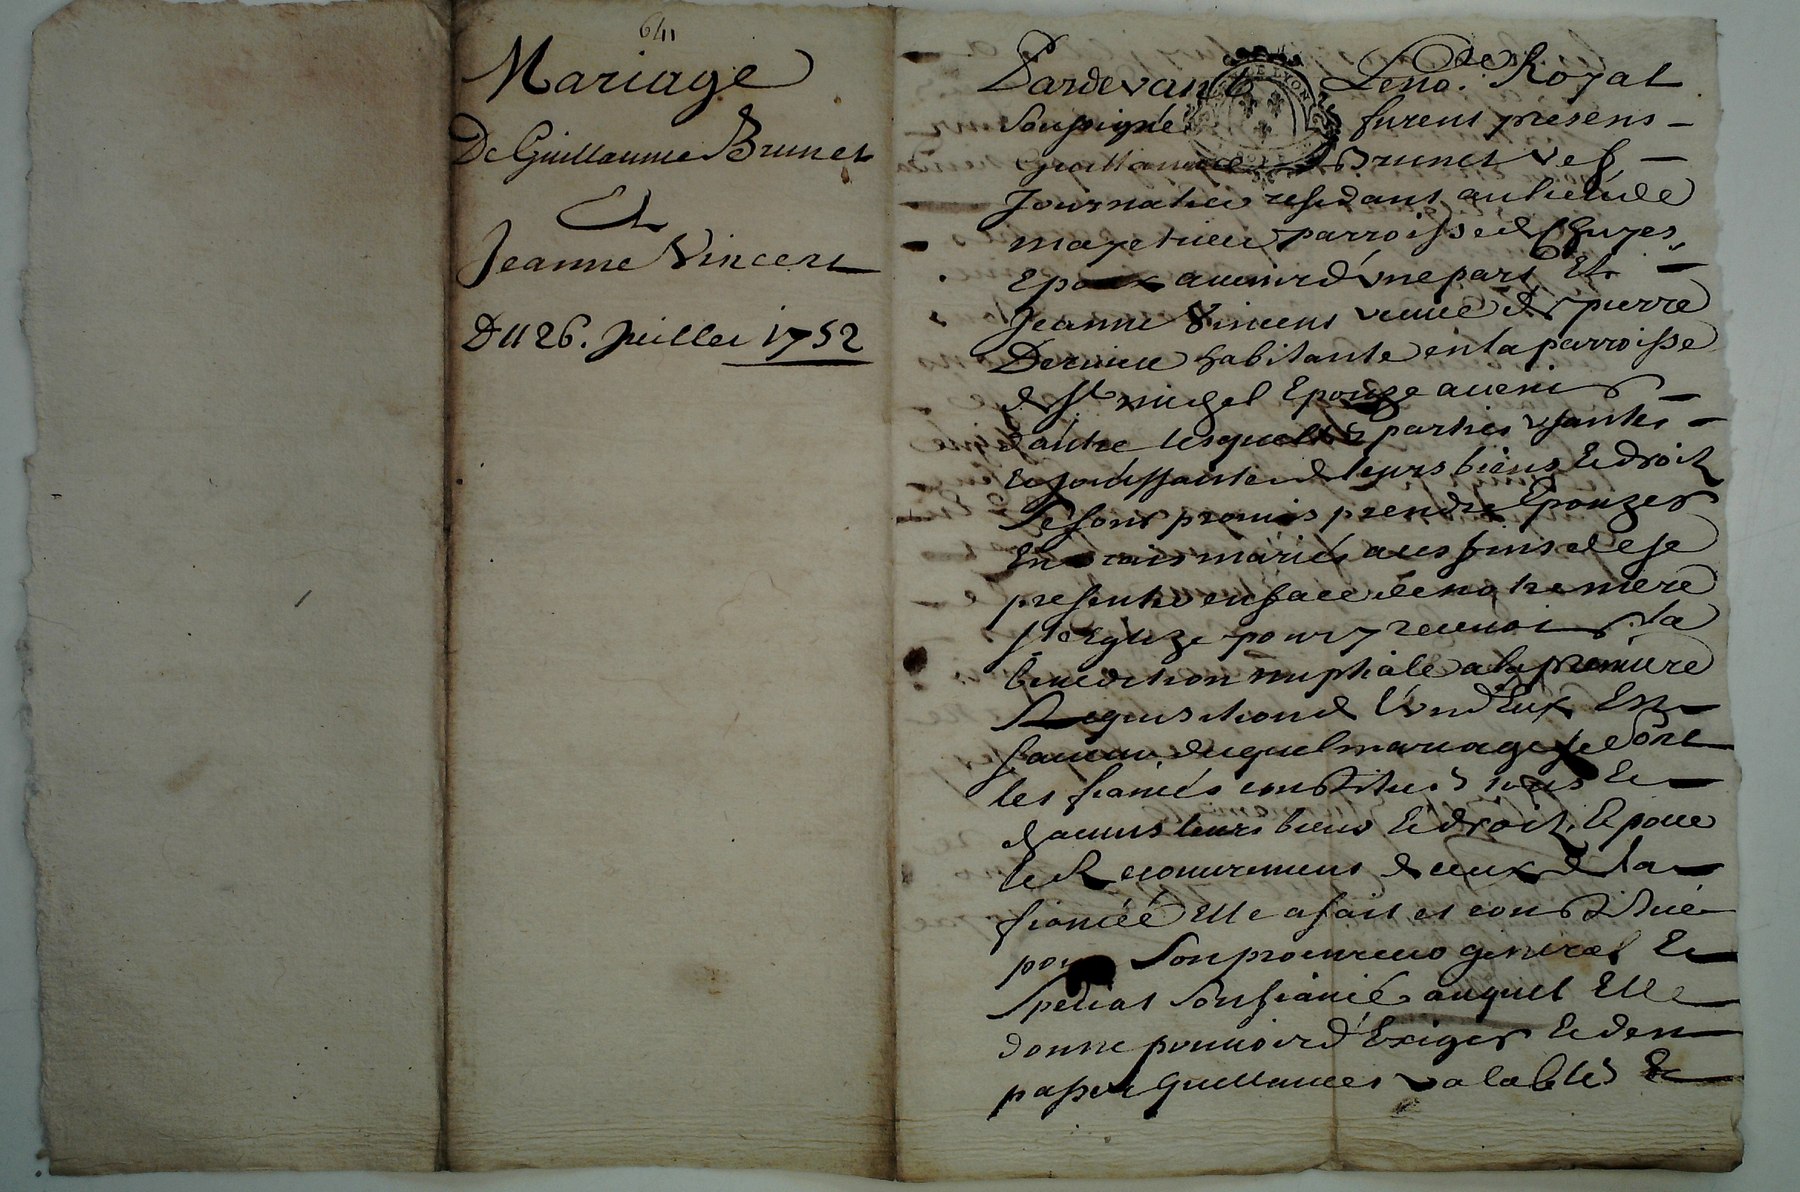 641
Mariage
De Guillaume Brunet
Et
Jeanne Vincent
Du 26. Juillet 1752
Pardevant Le no.re Royal
soussigné furent présens
Guillaume Brunet vef
Journalier residant au lieu de
mayetrieu parroisse de Chuyes
Epoux auenir d'vne part Et
Jeanne Vincent veuve de pierre
Dervieu habitante en la parroisse
de St michel Epouze auenir
d'autre lesquelles parties vsantes
et Jouissantes de leurs biens et droits
se sont promis prendre Epouzer
En vrais mariés aux fins de se
presenter en face de notre mere
ste Eglize pour y receuoir la
benediction nuptiale a la premiere
Requisition de l'vn d'Eux En
faueur duquel mariage se sont
les fiancés constitués tous et
chacuns leurs biens et droits, Et pour
le Recouurement de ceux de la
fiancéé Elle a fait et constitué
pour son procureur general et
special son fiancé auquel Elle
donne pouuoir d'Exiger et d'en
passer quittances valables Et